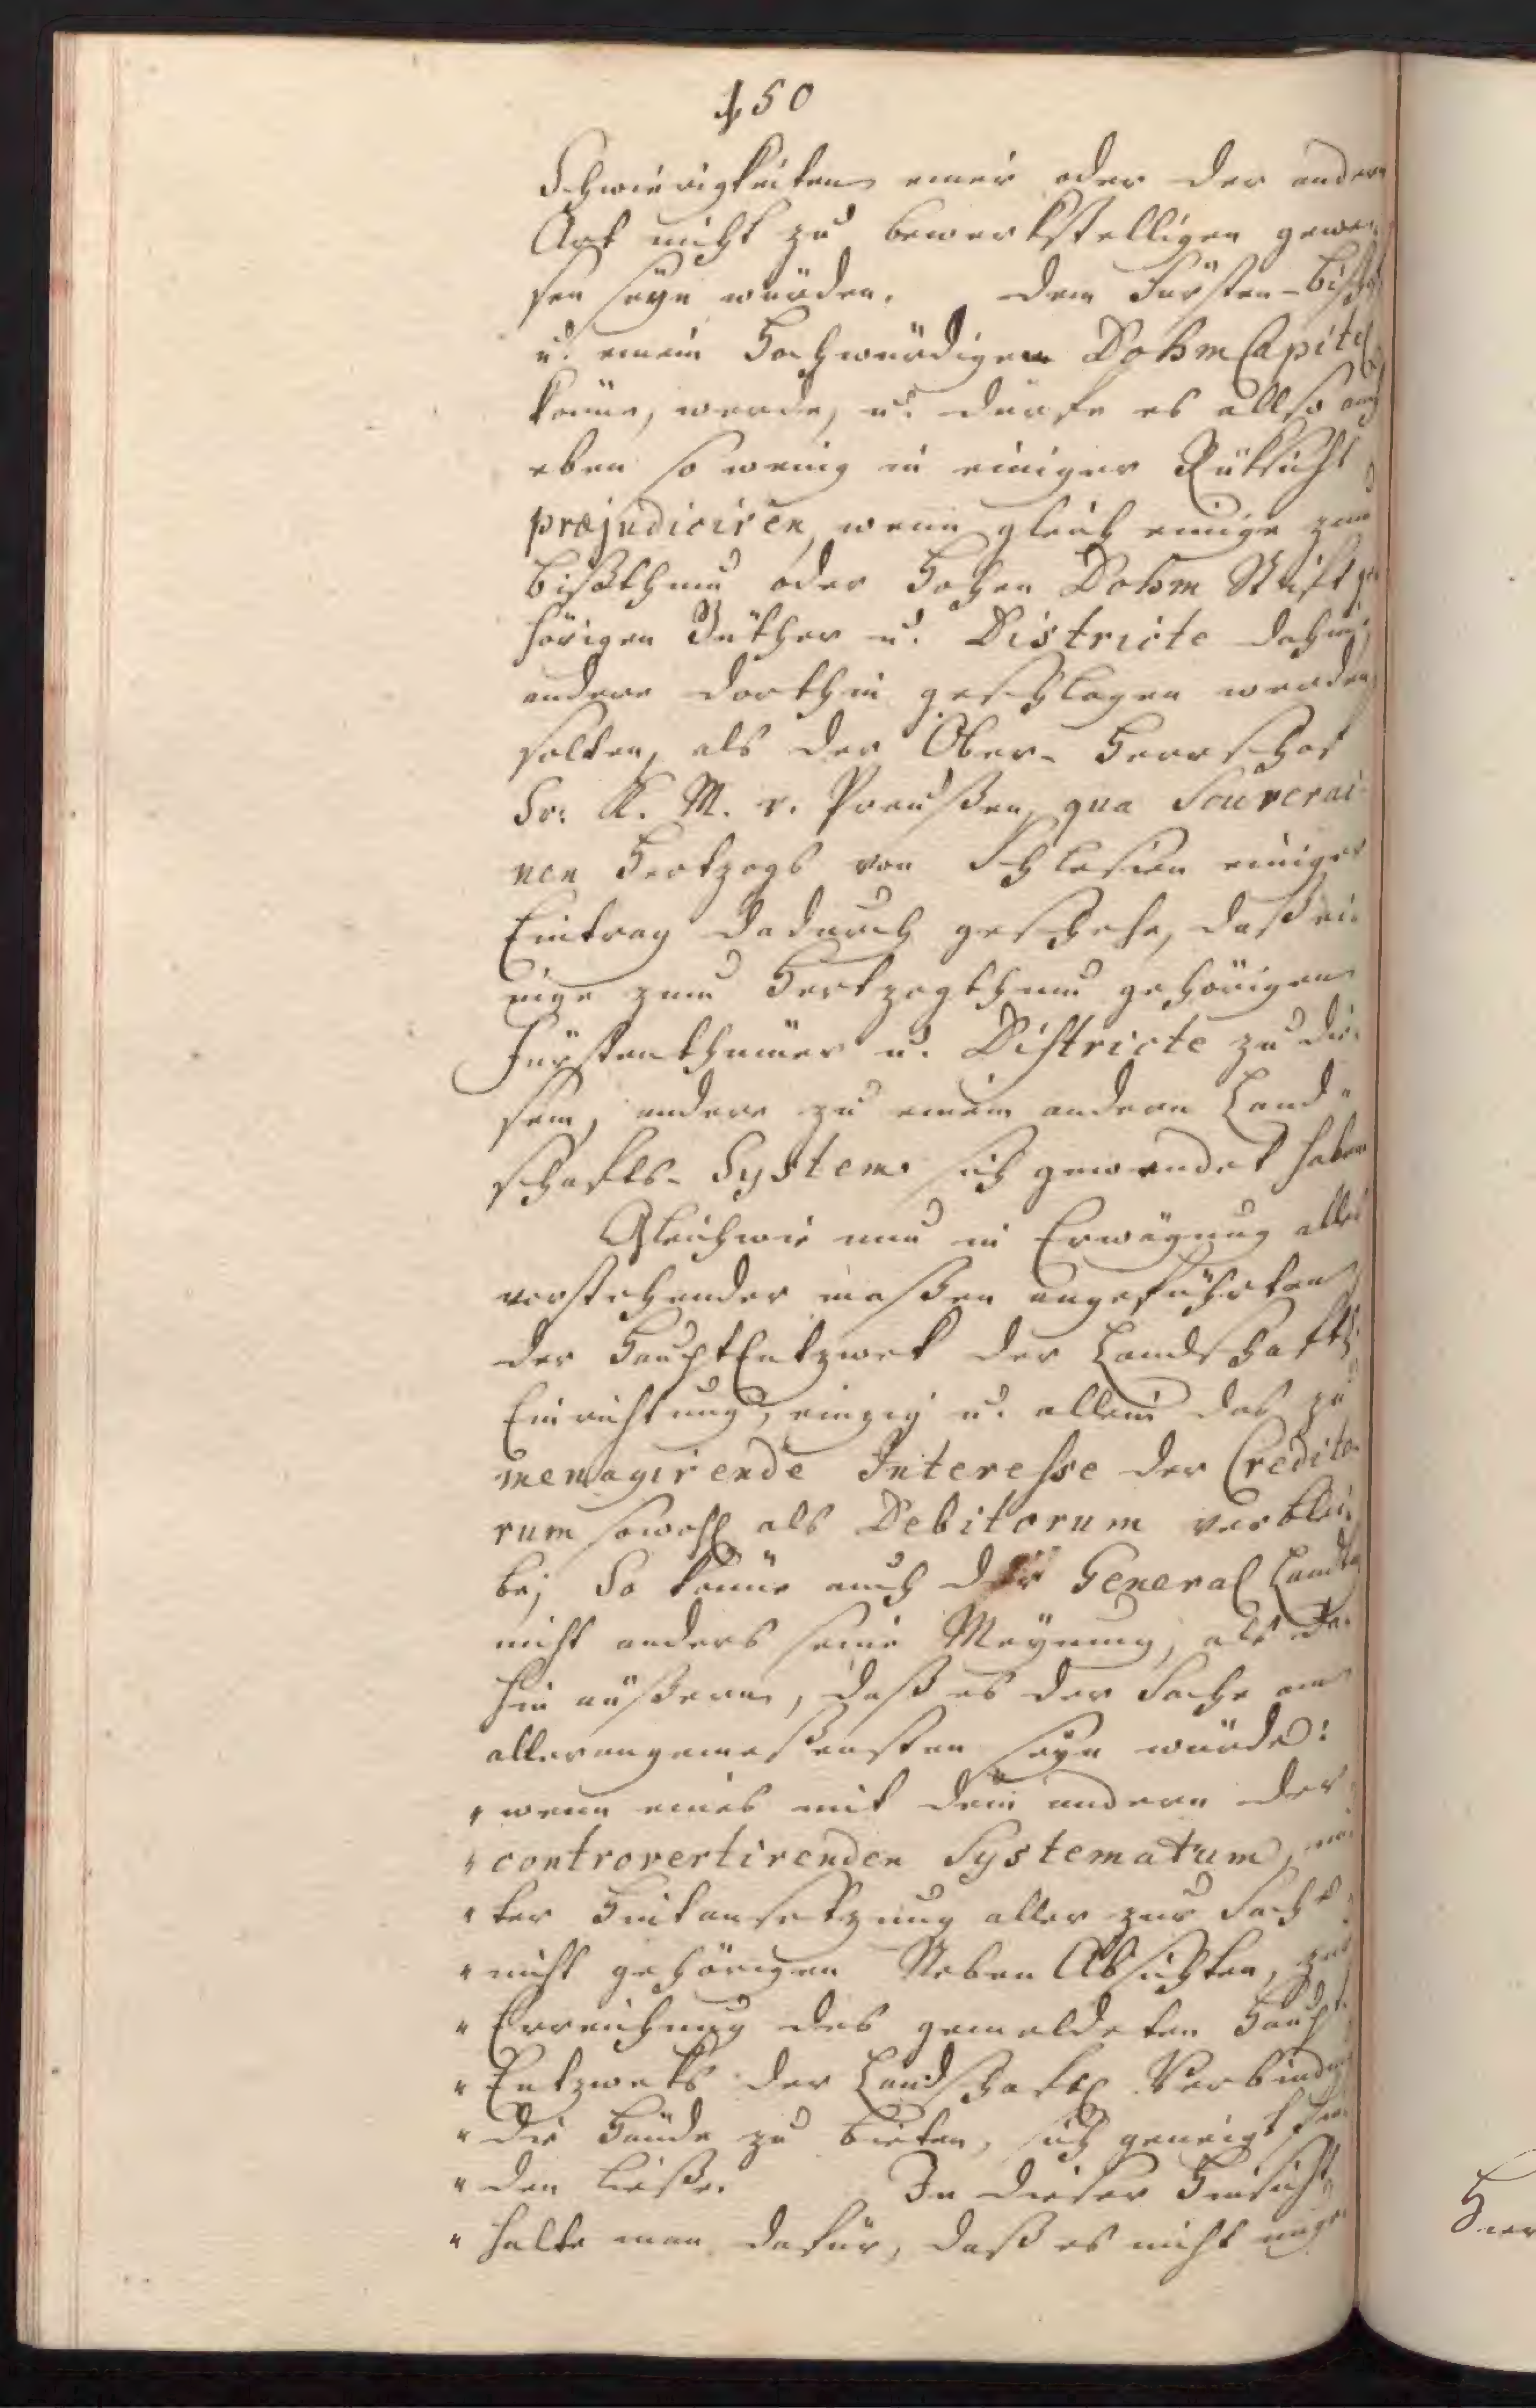 150
Schwierigkeiten einer oder der andern
Art nicht zu bewerkstelligen gewe-
sen seyn würden. dem Fürsten-Bischof
u. einem Hochwürdigen Dohm Capitel
könne, werde, u. dürfe es allso auch
eben so wenig in einiger Rüksicht
præjudiciren, wenn gleich einige zum
Bißthum oder Hohen Dohm Stift ge-
hörigen Güther u. Districte dahin,
andere dorthin geschlagen werden
solten, als der Ober-Herrschaft
Sr. K. M. v. Preußen, qua Souverai-
nen Hertzogs von Schlesien einiger
Eintrag dadurch geschehe, daß ei-
nige zum Hertzogthum gehörigen
Fürstenthümer u. Districte zu die-
sem, andere zu einem andern Land-
schafts-System sich gewendet haben
Gleichwie nun in Erwägung alles
vorstehender maßen angeführten
der HauptEntzwek der Landschaftl.
Einrichtung, einzig u. allein das zu
menagirende Interesse der Credito-
rum sowohl als Debitorum verblei-
be; So könne auch der General Landtag
nicht anders seine Meynung, als da-
hin äußern, daß es der Sache am
allerangemeßensten seyn würde:
" wenn eines mit dem andern der
" controvertirenden Systematum, un-
" ter Hintansetzung aller zur Sache
" nicht gehörigen Neben Absichten, zur
" Erreichung des gemeldeten Haupt-
" Entzweks der Landschaftl. Verbindung
" die Hände zu bieten, sich geneigt fin-
" den ließe. In dieser Hinsicht
" halte man dafür, daß es nicht unge-